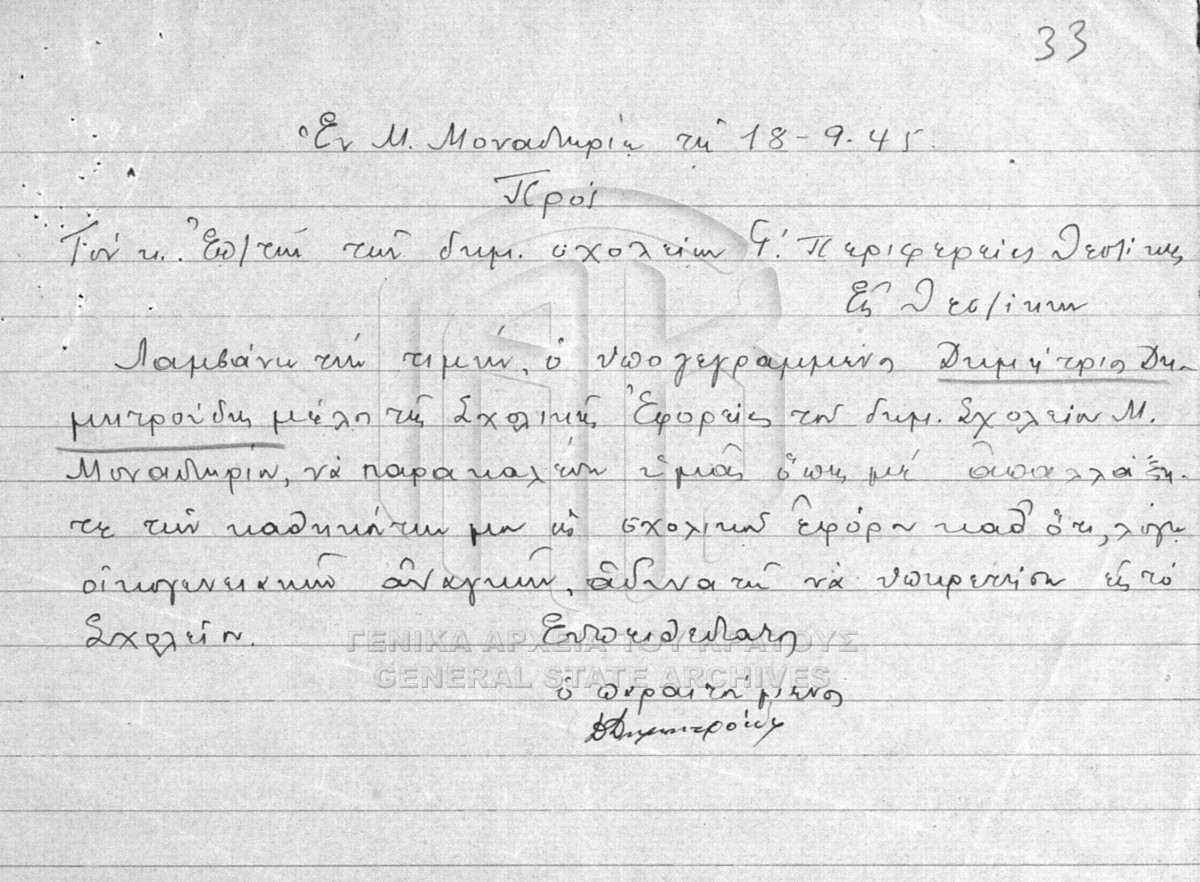 33
Ἐν Μ. Μοναστηρίῳ τῇ 18-9-45.
Πρός
Τόν κ. Ἐπ/τήν τῶν δημ. σχολείων Ϛ΄. Περιφερείας Θεσ/ίκης
Εἰς Θεσ/ίκην
Λαμβάνω τήν τιμήν, ὁ ὑπογεγραμμένος Δημήτριος Δη-
μητρούδης μέλος τῆς Σχολικῆς Ἐφορείας τοῦ δημ. Σχολείου Μ.
Μοναστηρίου, νά παρακαλέσω ὑμᾶς ὅπως μέ ἀπαλλάξη-
τε τῶν καθηκόντων μου ὡς σχολικοῦ ἐφόρου καθ' ὅτι, λόγῳ
οἰκογενειακῶν ἀναγκῶν, ἀδυνατῶ νά ὑπηρετήσω εἰς τό
Σχολεῖον.
Εὐπειθέστατος
ὁ παραιτούμενος
ΔΔημητρούδης
ΓΕΝΙΚΑ ΑΡΧΕΙΑ ΤΟΥ ΚΡΑΤΟΥΣ
GENERAL STATE ARCHIVES